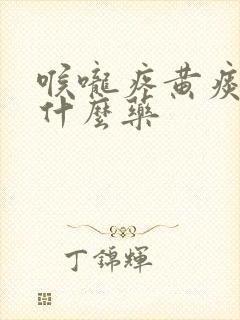 喉嚨疼黃痰
什麼藥
丁錦輝